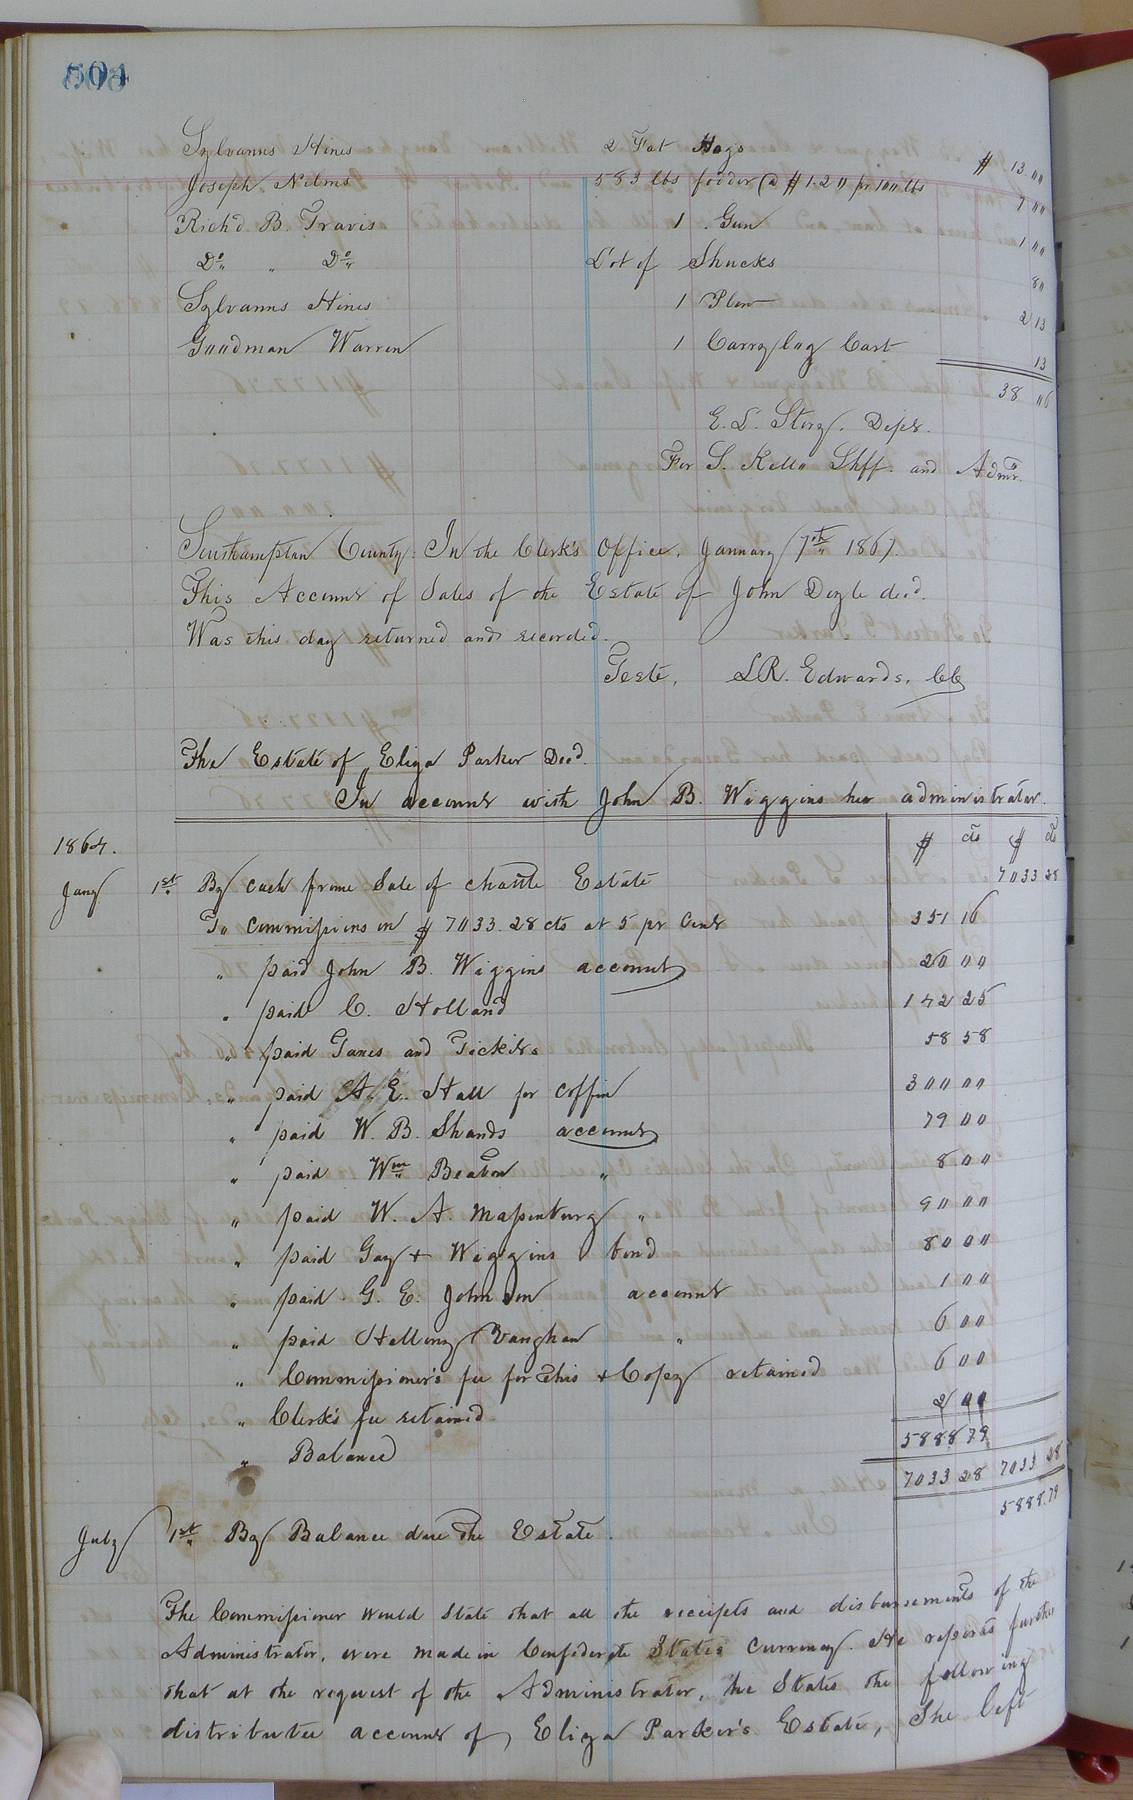 504
Sylvanus Hines 2 Fat Hogs $ 13.00
Joseph Nelms 583 lbs fodder @ $1.20 pr 100 lbs 7 00
Richd. B. Travis 1 Gun 1 00
Do " Do Lot of Shucks 80
Sylvanus Hines 1 Plow 2 13
Goodman Warren 1 Carrylog Cart 13
38 06
E. L. Story. Depr.
For S. Kello Shff. and Admr.
Southampton County: In the Clerk's Office, January 7th 1867.
This Account of Sales of the Estate of John Doyle decd.
Was this day returned and recorded.
Teste, L.R. Edwards, CC
The Estate of Eliza Parker Decd.
In account with John B. Wiggins her administrator.
$ cts $ cts
1864.
Jany 1st By cash frome Sale of chattle Estate 7033 28
To commissions on $ 7033.28 cts at 5 pr Cent 351 16
" paid John B. Wiggins account 20 00
" paid C. Holland 142 25
" paid Taxes and Tickets 58 58
" paid A. E. Hall for coffin 300 00
" paid W. B. Shands account 79 00
" paid Wm Beaton " 8 00
" paid W. A. Massenburg " 90 00
" paid Gay & Wiggins bond 80 00
" paid G. E. Johnson account 1 00
" paid Vaughan " 6 00
" Commissioner's fee for this & Copy retained 6 00
" Clerk's fee retained 2 00
" Balance 5888 79
7033 28 7033 28
July 1st By Balance due the Estate. 5888.79
The Commissioner would State that all the receipts and disbursements of the
Administrator, were made in Confederate States currency. He reports further
that at the request of the Administrator, he States the following
distributee account of Eliza Parker's Estate, She left